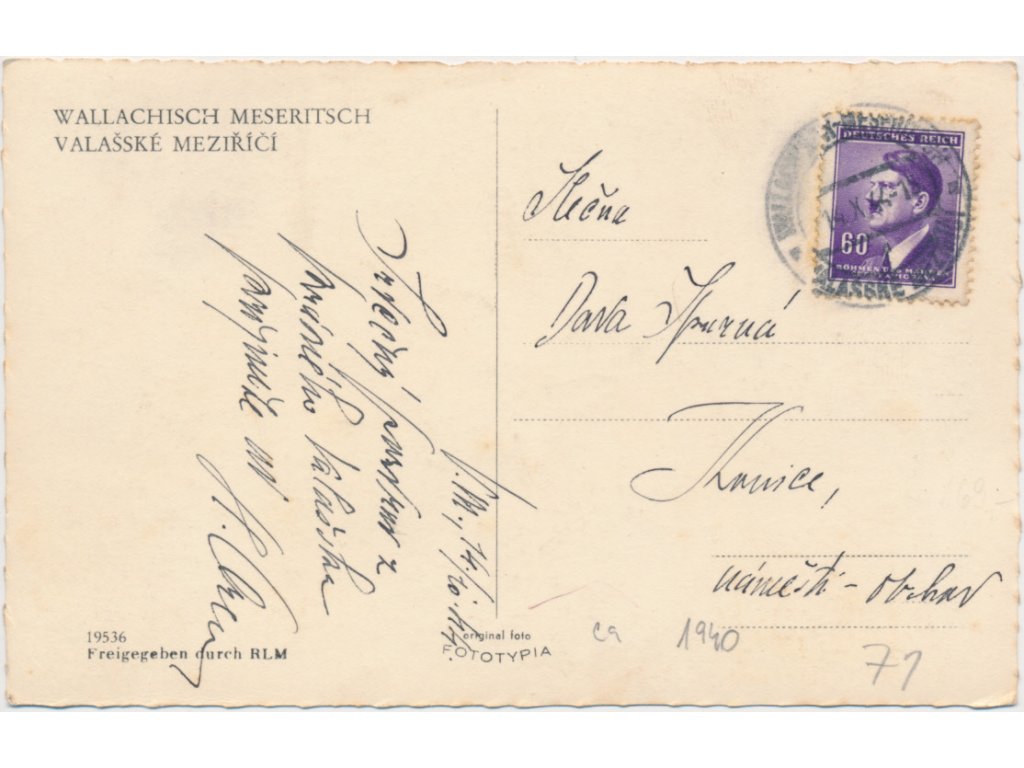 WALLACHISCH MESERITSCH
VALAŠSKÉ MEZIŘÍČÍ
Srdečný pozdrav z
krásného Valašska
posílá
V.M., 14.10.44.
19536
Freigegeben durch RLM
original foto
FOTOTYPIA
Slečna
Konice,
náměstí - obchod
ca 1940
71
DEUTSCHES REICH
60
BÖHMEN U. MÄHREN
VALAŠSKÉ